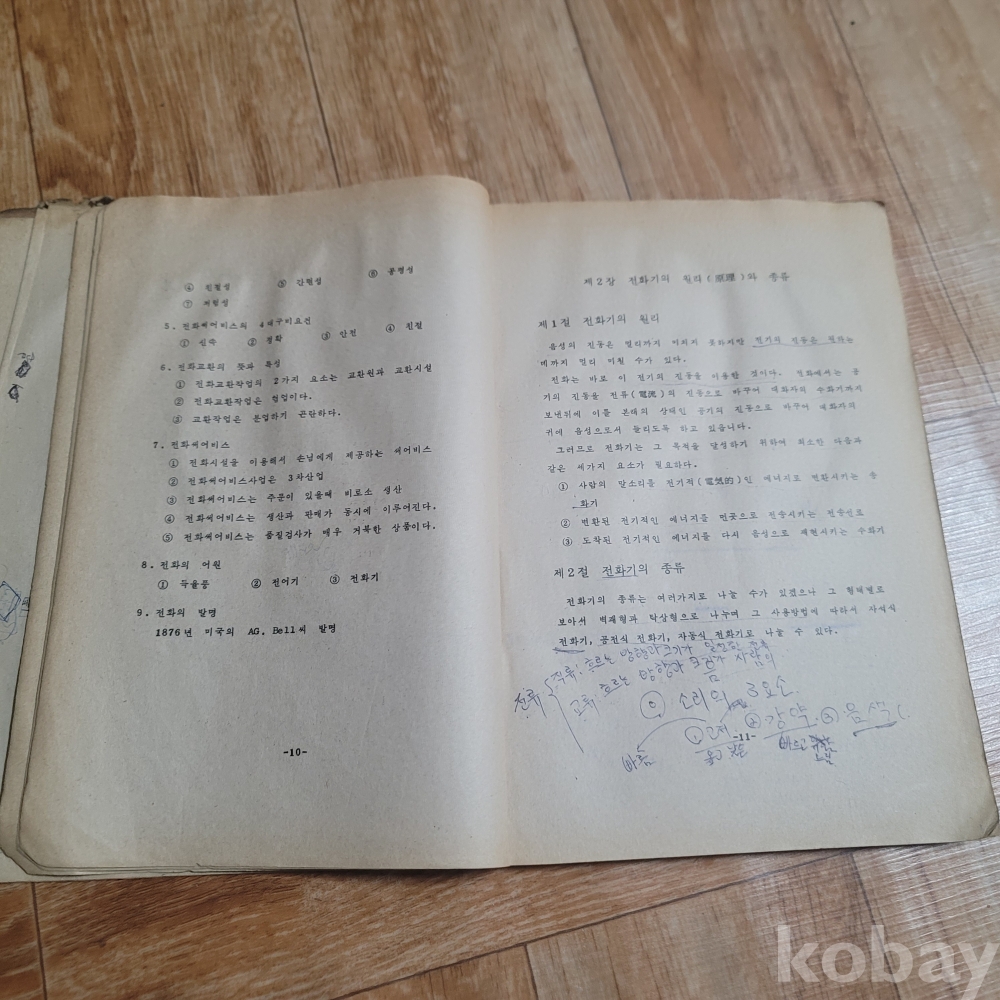 ④ 친절성 ⑤ 간편성 ⑥ 공평성
⑦ 저렴성
5. 전화써어비스의 4대구비요건
① 신속 ② 정확 ③ 안전 ④ 친절
6. 전화교환의 뜻과 특성
① 전화교환작업의 2가지 요소는 교환원과 교환시설
② 전화교환작업은 협업이다.
③ 교환작업은 분업하기 곤란하다.
7. 전화써어비스
① 전화시설을 이용해서 손님에게 제공하는 써어비스
② 전화써어비스사업은 3차산업
③ 전화써어비스는 주문이 있을때 비로소 생산
④ 전화써어비스는 생산과 판매가 동시에 이루어진다.
⑤ 전화써어비스는 품질검사가 매우 거북한 상품이다.
8. 전화의 어원
① 득율풍 ② 전어기 ③ 전화기
9. 전화의 발명
1876년 미국의 AG. Bell씨 발명
-10-
제2장 전화기의 원리(原理)와 종류
제1절 전화기의 원리
음성의 진동은 멀리까지 미치지 못하지만 전기의 진동은 원하는
데까지 멀리 미칠 수가 있다.
전화는 바로 이 전기의 진동을 이용한 것이다. 전화에서는 공
기의 진동을 전류(電流)의 진동으로 바꾸어 대화자의 수화기까지
보낸뒤에 이를 본래의 상태인 공기의 진동으로 바꾸어 대화자의
귀에 음성으로서 들리도록 하고 있읍니다.
그러므로 전화기는 그 목적을 달성하기 위하여 최소한 다음과
같은 세가지 요소가 필요하다.
① 사람의 말소리를 전기적(電気的)인 에너지로 변환시키는 송
화기
② 변환된 전기적인 에너지를 먼곳으로 전송시키는 전송선로
③ 도착된 전기적인 에너지를 다시 음성으로 재현시키는 수화기
제2절 전화기의 종류
전화기의 종류는 여러가지로 나눌 수가 있겠으나 그 형태별로
보아서 벽괘형과 탁상형으로 나누며 그 사용방법에 따라서 자석식
전화기, 공전식 전화기, 자동식 전화기로 나눌 수 있다.
전류 직류: 흐르는 방향과 크기가 일정한
교류: 흐르는 방향과 크기가 사람의
소리의 3요소
① 고저 ② 강약 ③ 음색
-11-
kobay